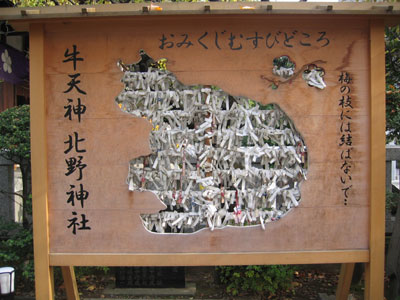 おみくじむすびどころ
梅の枝には結ばないで…
牛天神 北野神社